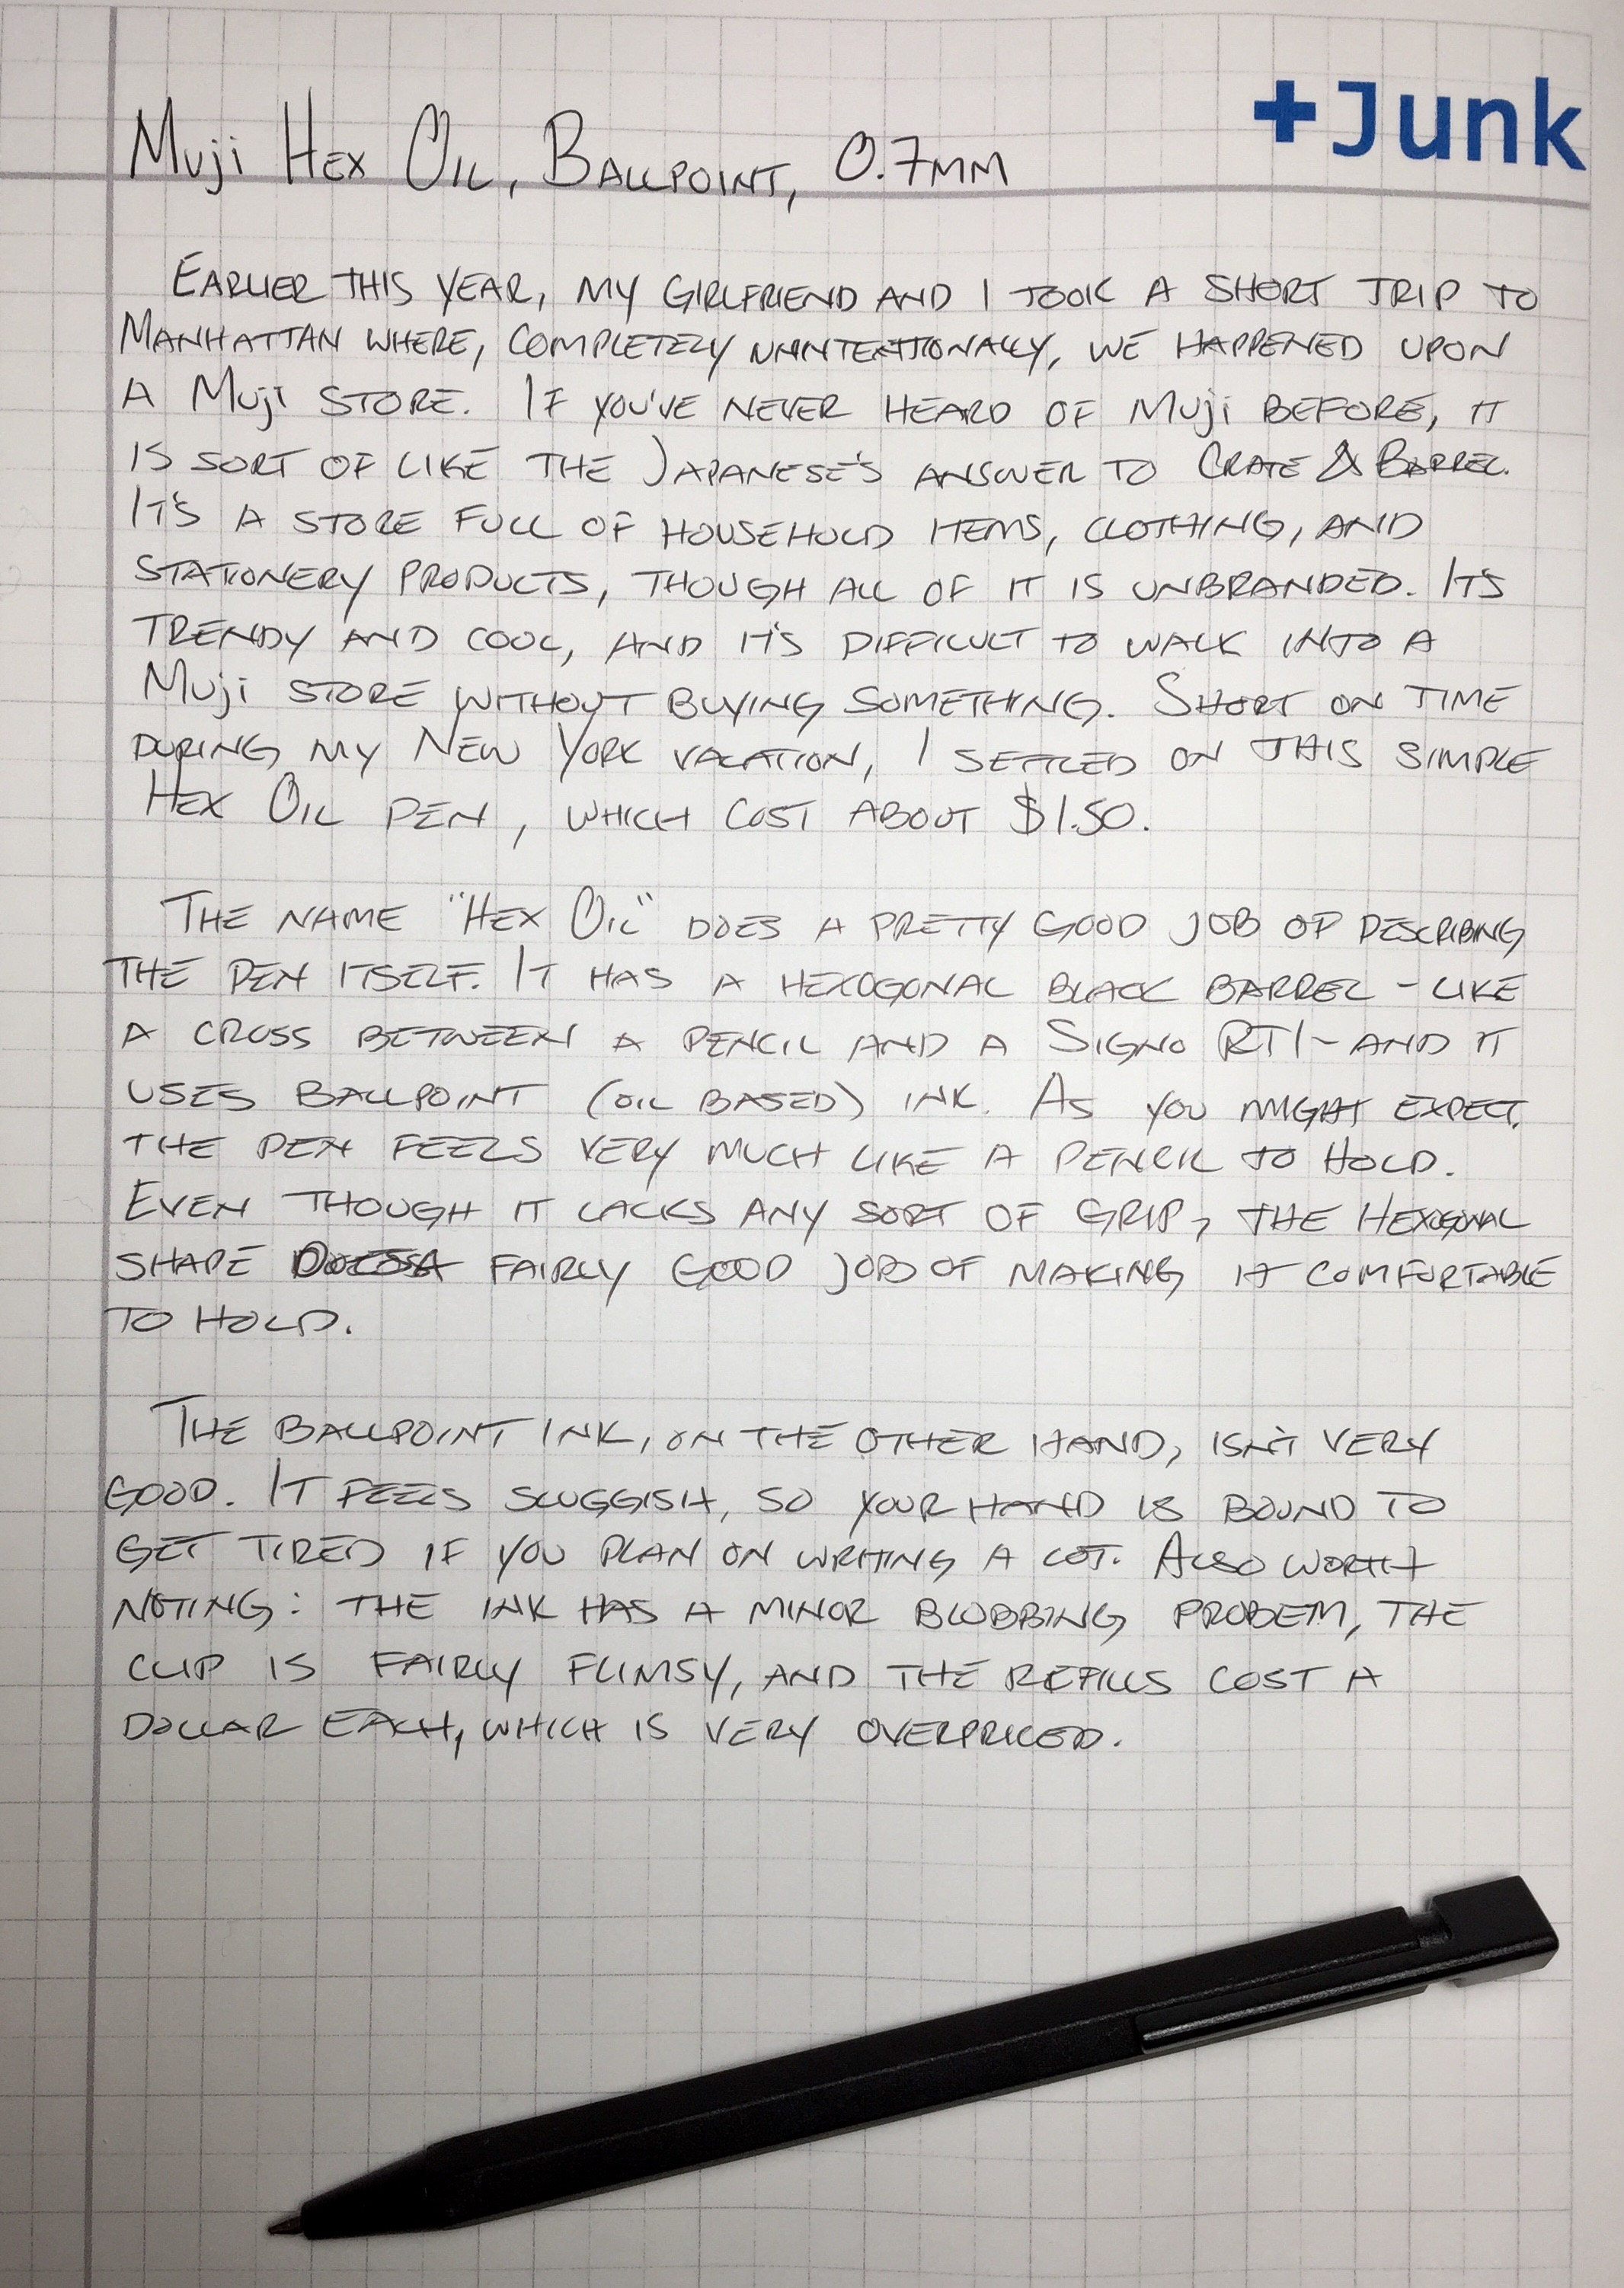 +Junk
Muji Hex Oil, Ballpoint, 0.7mm
Earlier this year, my girlfriend and I took a short trip to
Manhattan where, completely unintentionally, we happened upon
a Muji store. If you've never heard of Muji before, it
is sort of like the Japanese's answer to Crate & Barrel.
It's a store full of household items, clothing, and
stationery products, though all of it is unbranded. It's
trendy and cool, and it's difficult to walk into a
Muji store without buying something. Short on time
during my New York vacation, I settled on this simple
Hex Oil pen, which cost about $1.50.
The name "Hex Oil" does a pretty good job of describing
the pen itself. It has a hexogonal black barrel - like
a cross between a pencil and a Signo RT1 - and it
uses ballpoint (oil based) ink. As you might expect,
the pen feels very much like a pencil to hold.
Even though it lacks any sort of grip, the hexogonal
shape does a fairly good job of making it comfortable
to hold.
The ballpoint ink, on the other hand, isn't very
good. It feels sluggish, so your hand is bound to
get tired if you plan on writing a lot. Also worth
noting: the ink has a minor blobbing probem, the
clip is fairly flimsy, and the refills cost a
dollar each, which is very overpriced.